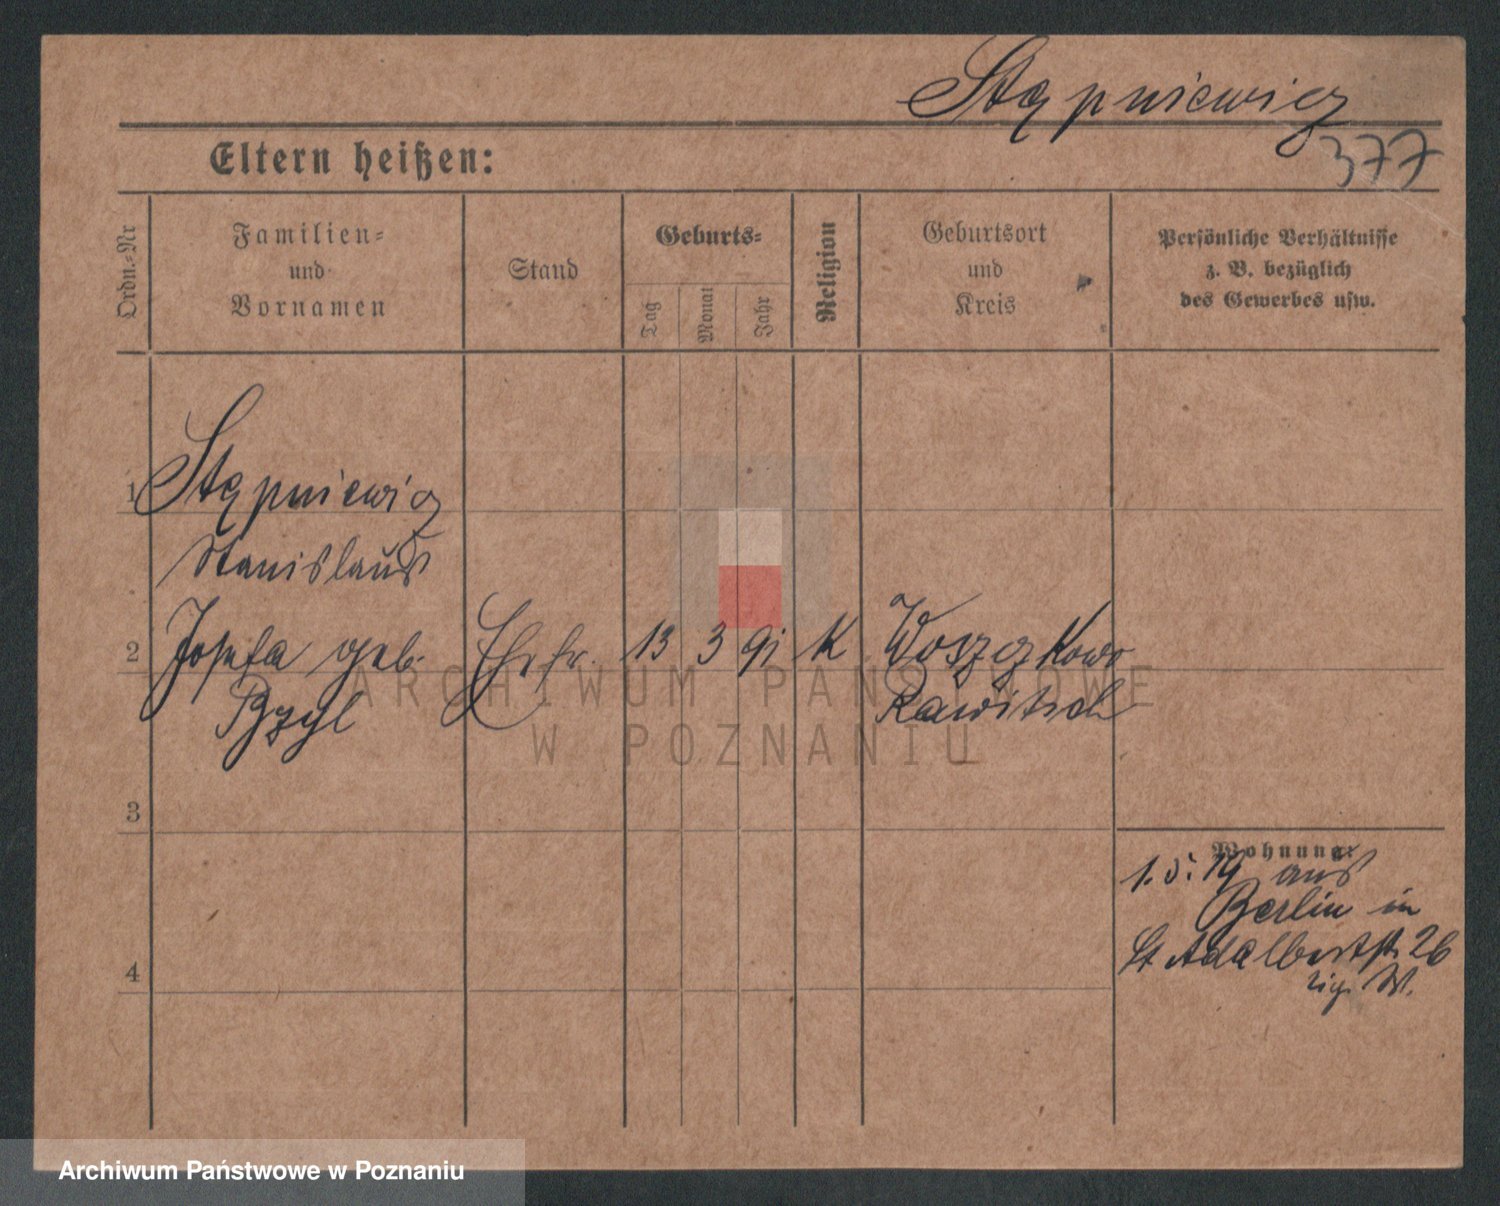 Stępniewicz
377
Eltern heißen:
Ordn.-Nr
Familien-
und
Vornamen
Stand
Geburts-
Tag
Monat
Jahr
Religion
Geburtsort
und
Kreis
Persönliche Verhältnisse
z. B. bezüglich
des Gewerbes usw.
1
Stępniewicz
Stanislaus
2
Josefa geb.
Ehefr.
13
3
91
K
Woszczkowo
Rawitsch
3
Wohnung:
1. 5. 19 aus
Berlin in
St Adalbertstr. 26
W.
4
ARCHIWUM PAŃSTWOWE
W POZNANIU
Archiwum Państwowe w Poznaniu